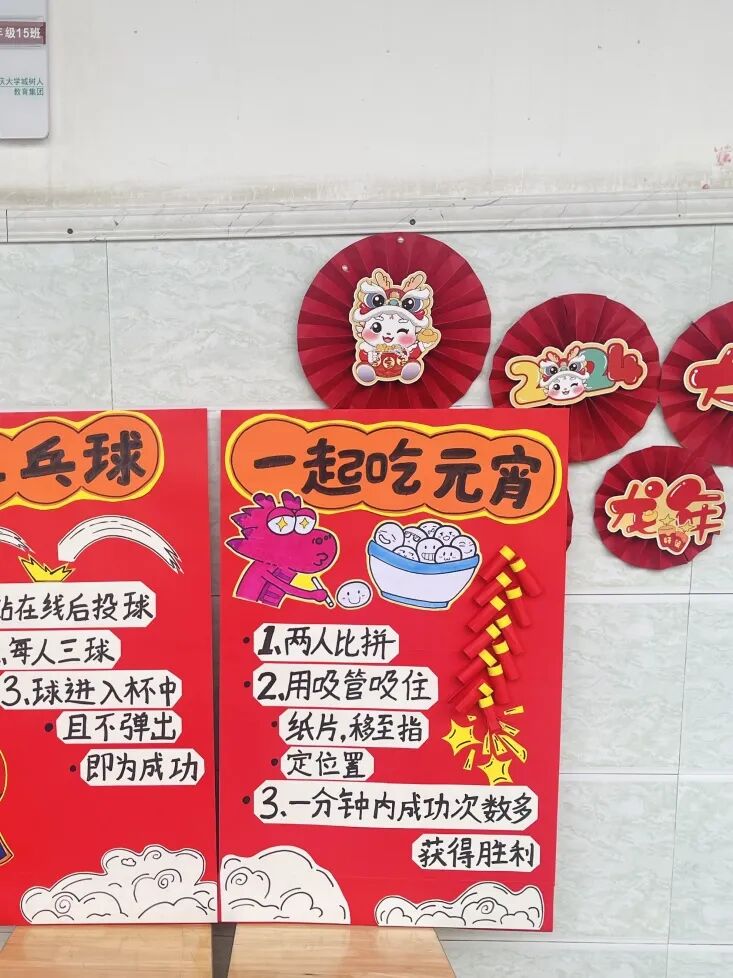 级15班
大学城树人
教育集团
2024
龙年
乓球
站在线后投球
每人三球
3.球进入杯中
且不弹出
即为成功
一起吃元宵
1.两人比拼
2.用吸管吸住
纸片,移至指
定位置
3.一分钟内成功次数多
获得胜利